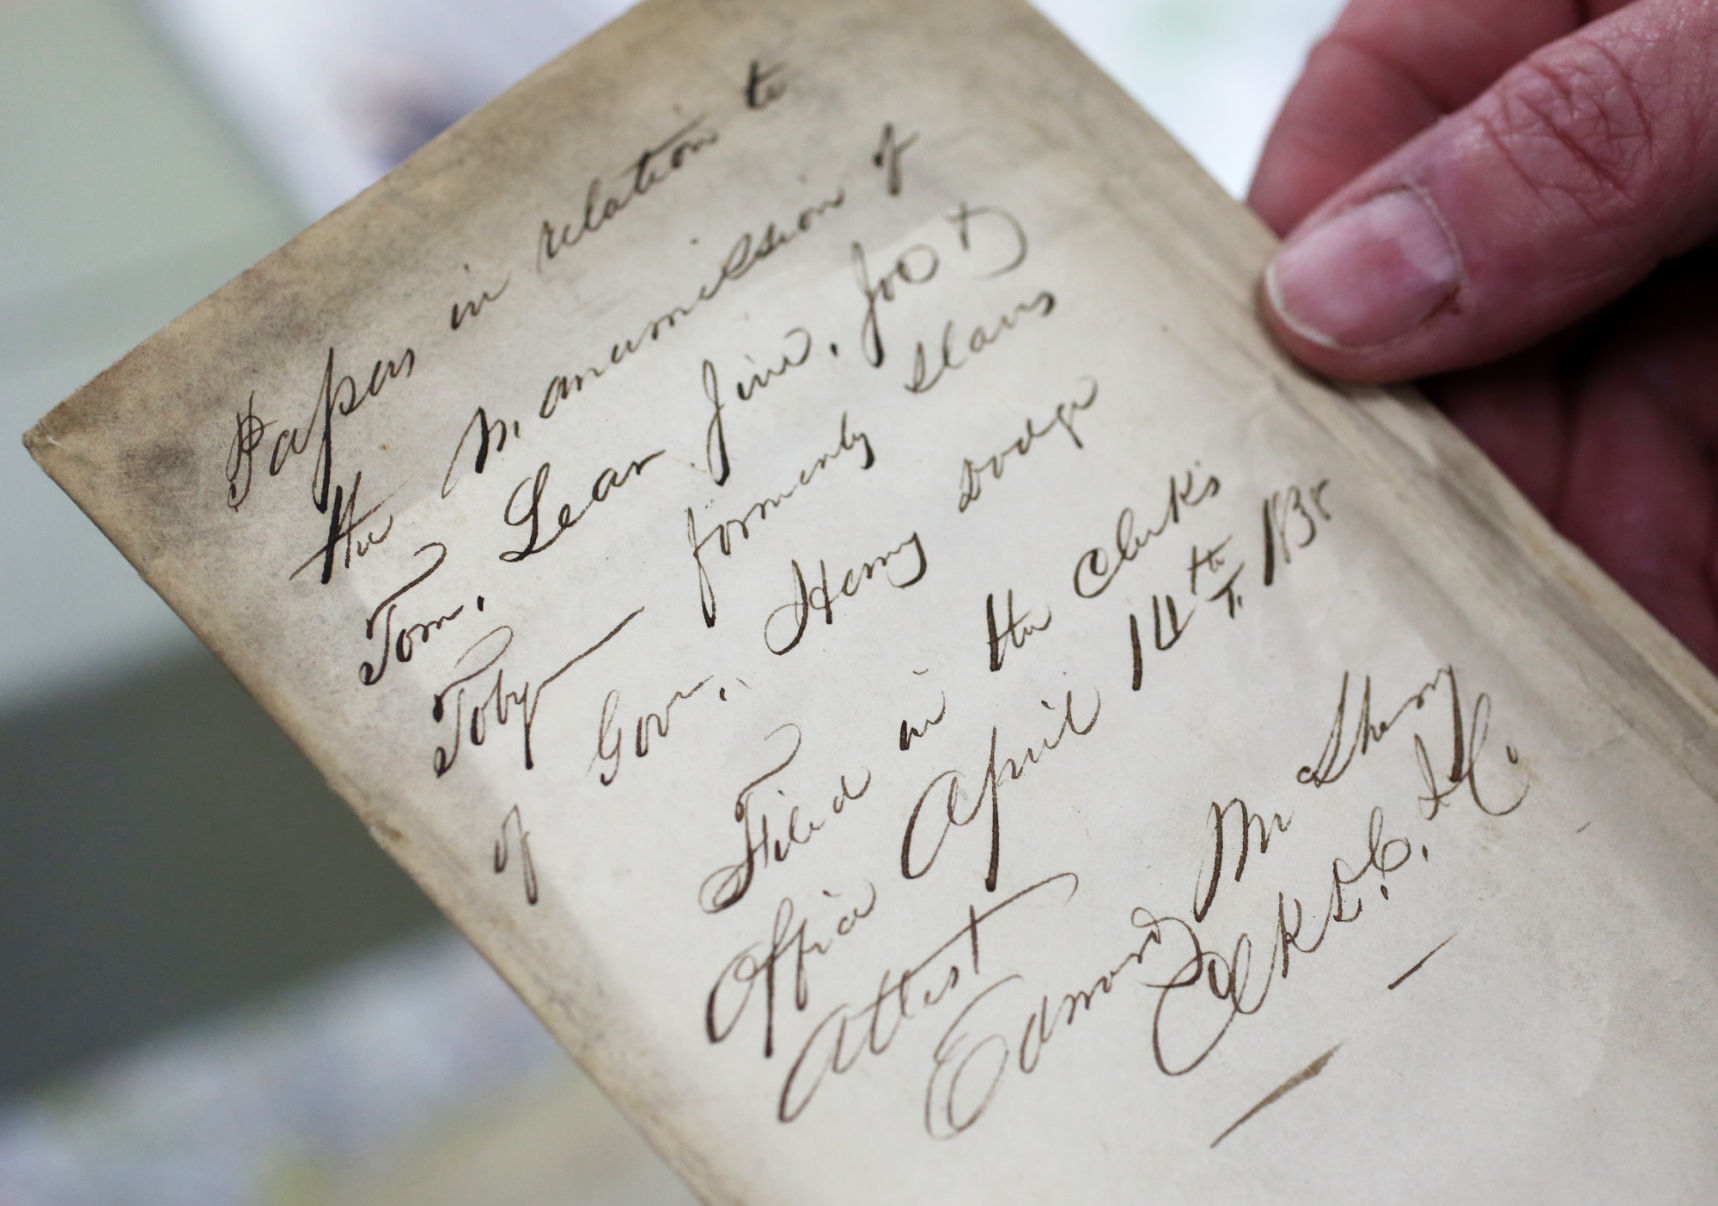 Papers in relation to
the Manumission of
Tom, Lear Jim, Joe &
Toby — formerly Slaves
of Gov. Henry Dodge
Filed in the Clerk's
Office April 14th 1838
Attest
Edmond McSherry
Clk D.C. I.C.